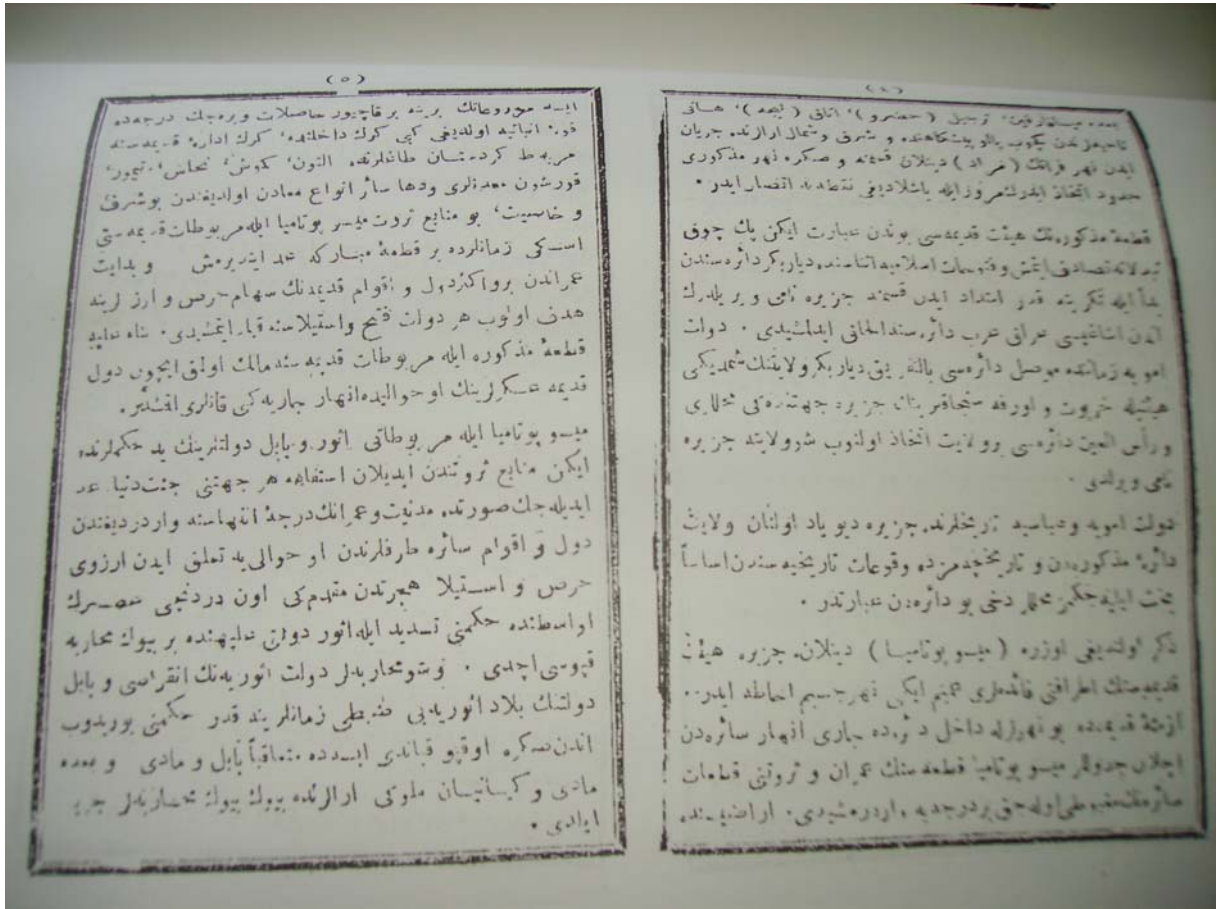 (٤)
بعده ميافارقين، ترجيل (حضرو)، اتاق (ليجه)، هانى
ايدن نهر فراتك (مراد) دينلان قسمنه و صكره نهر مذكورى
حدود اتخاذ ايدرك
قطعهٔ مذكوره‌نك هيئت قديمه‌سى بوندن عبارت ايكن پك چوق
تبدلاته تصادف ايتمش و فتوحات اسلاميه اثناسنده ديار بكر دائره‌سندن
بدأ ايله تكريته قدر امتداد ايدن قسمنه جزيره نامى ويريله‌رك
آندن اشاغيسى عراق عرب دائره‌سنه الحاق ايدلمشيدى. دولت
امويه زماننده موصل دائره‌سى بالتفريق ديار بكر ولايتنك شمديكى
هيئتيله خرپوت و اورفه سنجاقلرينك جزيره جهتنده‌كى محللرى
و رأس العين دائره‌سى بر ولايت اتخاذ اولنوب شو ولايته جزيره
نامى ويرلدى.
دولت امويه و عباسيه تاريخلرنده جزيره ديو ياد اولنان ولايت
دائرهٔ مذكوره‌دن و تاريخچه‌مزده وقوعات تاريخيه‌سندن اساساً
بحث ايليه‌جكمز محللر دخى بو دائره‌دن عبارتدر.
ذكر اولنديغى اوزره (ميسو پوتاميا) دينلان جزيره هيئت
قديمه‌سنك اطرافنى فائده‌لرى عميم ايكى نهر جسيم احاطه ايدر.
ازمنهٔ قديمه‌ده بو نهرلرله داخل دائره‌ده جارى انهار سائره‌دن
اچلان جدوللر ميسو پوتاميا قطعه‌سنك عمران و ثروتنى قطعات
سائره‌نك اوله‌جق بر درجه‌يه واردرمشيدى. اراضيسنده
(٥)
ايسه مزروعاتك برينه بر قاچيوز حاصلات ويره‌جك درجه‌ده
قوهٔ انباتيه اولديغى كبى كرك داخلنده، كرك ادارهٔ قديمه‌سنه
مربوط كردستان طاغلرنده التون، كموش، نحاس، تيمور،
قورشون معدنلرى ودها سائر انواع معادن اولديغندن بو شرف
و خاصيت، بو منابع ثروت ميسو پوتاميا ايله مربوطات قديمه‌سنى
اسكى زمانلرده بر قطعهٔ مباركه عد ايتديرمش و بدايت
عمراندن برو اكثر دول و اقوام قديمه‌نك سهام حرص و ارزولرينه
هدف اولوب هر دولت فتح و استيلاسنه قيام ايتمشيدى. بناء عليه
قطعهٔ مذكوره ايله مربوطات قديمه‌سنه مالك اولمق ايچون دول
قديمه عسكرلرينك او حواليده انهار جاريه كبى قانلرى اقمشدر.
ميسو پوتاميا ايله مربوطاتى اثور و بابل دولتلرينك يد حكملرنده
ايكن منابع ثروتندن ايديلان استفاده هر جهتنى جنت دنيا عد
ايديله‌جك صورتده مدنيت و عمرانك درجهٔ انتهاسنه واردرديغندن
دول و اقوام سائره طرفلرندن او حوالى‌يه تعلق ايدن ارزوى
حرص و استيلا هجرتدن مقدم‌كى اون دردنجى عصرك
اواسطنده حكمنى تشديد ايله اثور دولتى عليهنده بر بيوك محاربه
قپوسى اچدى. شو محاربه‌لر دولت اثوريه‌نك انقراضى و بابل
دولتنك بلاد اثوريه‌يى ضبطى زمانلرينه قدر حكمنى يوريدوب
اندن صكره او قپو قپاندى ايسه‌ده متعاقباً بابل و مادى و بعده
مادى و كيانيان ملوكى ارالرنده بيوك بيوك محاربه‌لر جريان
ايلدى.